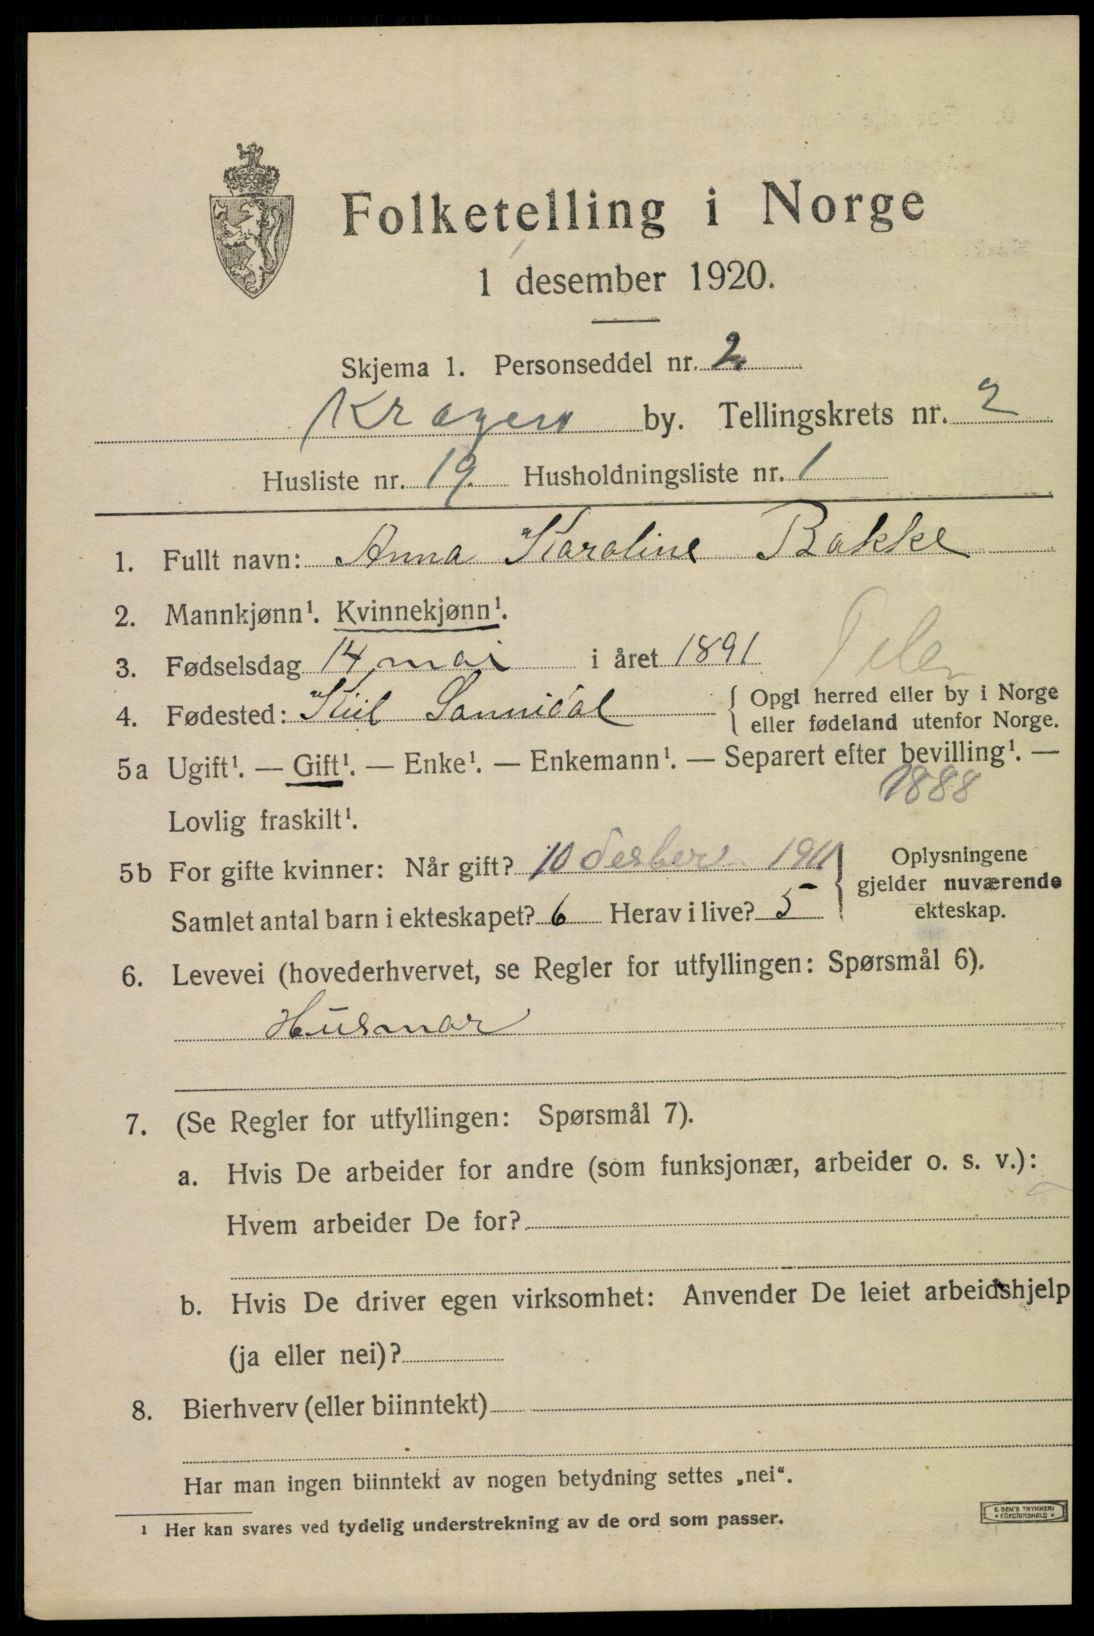 Folketelling i Norge
1 desember 1920.
Skjema 1. Personseddel nr. 2
Kragerø by. Tellingskrets nr. 2
Husliste nr. 19. Husholdningsliste nr. 1
1. Fullt navn: Anna Karoline Bakke
2. Mannkjønn¹. Kvinnekjønn¹.
3. Fødselsdag 14 mai i året 1891
4. Fødested: Kiil Sannidal { Opgl herred eller by i Norge
eller fødeland utenfor Norge.
5a Ugift¹. — Gift¹. — Enke¹. — Enkemann¹. — Separert efter bevilling¹. —
Lovlig fraskilt¹.
1888
5b For gifte kvinner: Når gift? 10 1911
Samlet antal barn i ekteskapet? 6 Herav i live? 5
} Oplysningene
gjelder nuværende
ekteskap.
6. Levevei (hovederhvervet, se Regler for utfyllingen: Spørsmål 6).
Husmor
7. (Se Regler for utfyllingen: Spørsmål 7).
a. Hvis De arbeider for andre (som funksjonær, arbeider o. s. v.):
Hvem arbeider De for?
b. Hvis De driver egen virksomhet: Anvender De leiet arbeidshjelp
(ja eller nei)?
8. Bierhverv (eller biinntekt)
Har man ingen biinntekt av nogen betydning settes „nei“.
¹ Her kan svares ved tydelig understrekning av de ord som passer.